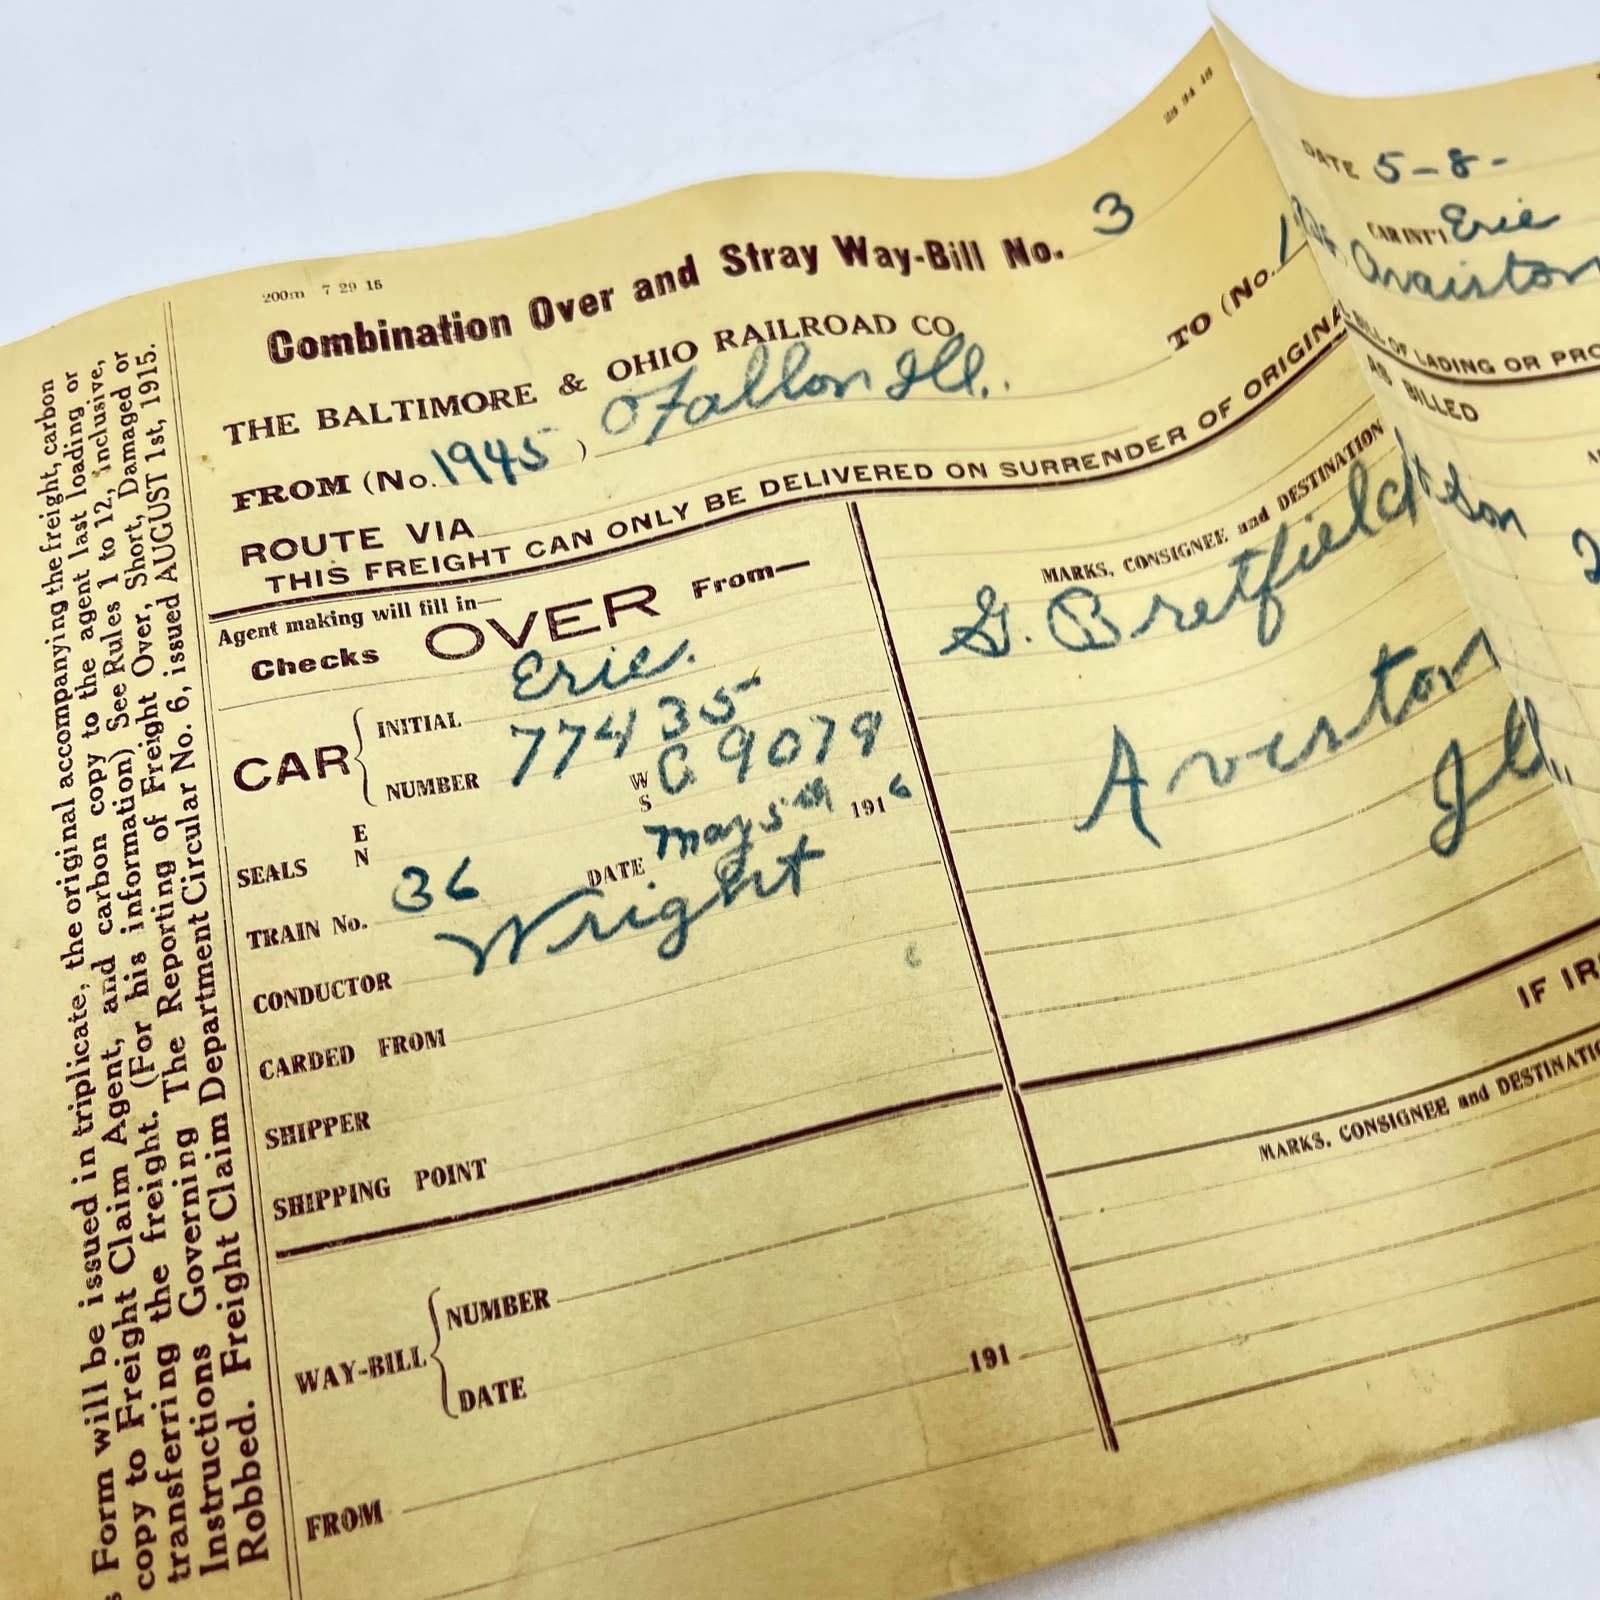 200m 7 29 15
28 34 15
Combination Over and Stray Way-Bill No. 3
THE BALTIMORE & OHIO RAILROAD CO.
FROM (No. 1945) OFallon Ill.
TO (No. 1
ROUTE VIA
THIS FREIGHT CAN ONLY BE DELIVERED ON SURRENDER OF ORIGINA
Agent making will fill in—
Checks OVER From—
CAR INITIAL Erie.
NUMBER 77435
SEALS E N W S C 9079
TRAIN No. 36 DATE May 5th 1916
CONDUCTOR Wright
CARDED FROM
SHIPPER
SHIPPING POINT
WAY-BILL NUMBER
DATE 191
FROM
MARKS, CONSIGNEE and DESTINATION
G. Bretfield & Son
Aviston
Ill.
IF IR
MARKS, CONSIGNEE and DESTINATIO
DATE 5-8-
CAR INT'L Erie
Avaiston
BILL OF LADING OR PRO
AS BILLED
2
s Form will be issued in triplicate, the original accompanying the freight, carbon
copy to Freight Claim Agent, and carbon copy to the agent last loading or
transferring the freight. (For his information) See Rules 1 to 12, inclusive,
Instructions Governing The Reporting of Freight Over, Short, Damaged or
Robbed. Freight Claim Department Circular No. 6, issued AUGUST 1st, 1915.